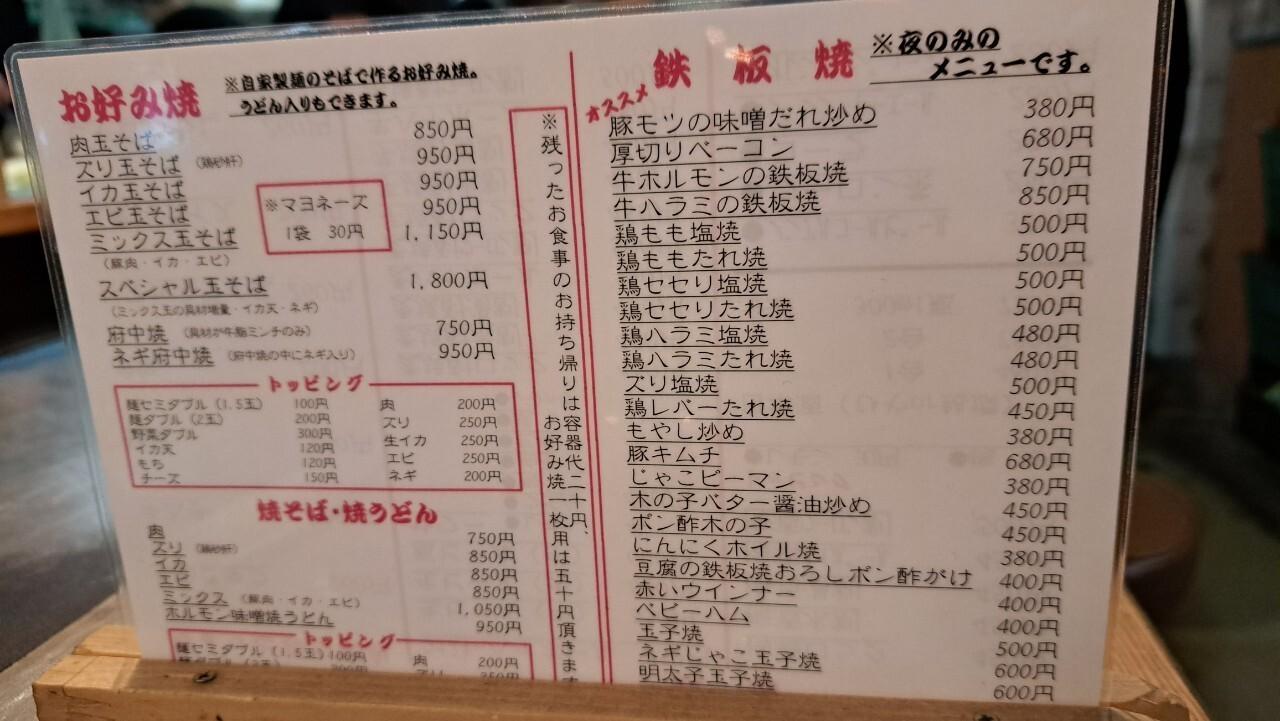 お好み焼
※自家製麺のそばで作るお好み焼。
うどん入りもできます。
肉玉そば 850円
ズリ玉そば (鶏砂肝) 950円
イカ玉そば 950円
エビ玉そば 950円
ミックス玉そば 1,150円
(豚肉・イカ・エビ)
※マヨネーズ
1袋 30円
スペシャル玉そば 1,800円
(ミックス玉の具材増量・イカ天・ネギ)
府中焼 (具材が牛脂ミンチのみ) 750円
ネギ府中焼 (府中焼の中にネギ入り) 950円
トッピング
麺セミダブル (1.5玉) 100円 肉 200円
麺ダブル (2玉) 200円 ズリ 250円
野菜ダブル 300円 生イカ 250円
イカ天 120円 エビ 250円
もち 120円 ネギ 200円
チーズ 150円
焼そば・焼うどん
肉 750円
ズリ (鶏砂肝) 850円
イカ 850円
エビ 850円
ミックス (豚肉・イカ・エビ) 1,050円
ホルモン味噌焼うどん 950円
トッピング
麺セミダブル (1.5玉) 100円 肉 200円
※残ったお食事のお持ち帰りは容器代二十円、
お好み焼一枚用は五十円頂きます
鉄板焼
※夜のみの
メニューです。
オススメ
豚モツの味噌だれ炒め 380円
厚切りベーコン 680円
牛ホルモンの鉄板焼 750円
牛ハラミの鉄板焼 850円
鶏もも塩焼 500円
鶏ももたれ焼 500円
鶏セセリ塩焼 500円
鶏セセリたれ焼 500円
鶏ハラミ塩焼 480円
鶏ハラミたれ焼 480円
ズリ塩焼 500円
鶏レバーたれ焼 450円
もやし炒め 380円
豚キムチ 680円
じゃこピーマン 380円
木の子バター醤油炒め 450円
ポン酢木の子 450円
にんにくホイル焼 380円
豆腐の鉄板焼おろしポン酢がけ 400円
赤いウインナー 400円
ベビーハム 400円
玉子焼 500円
ネギじゃこ玉子焼 600円
明太子玉子焼 600円